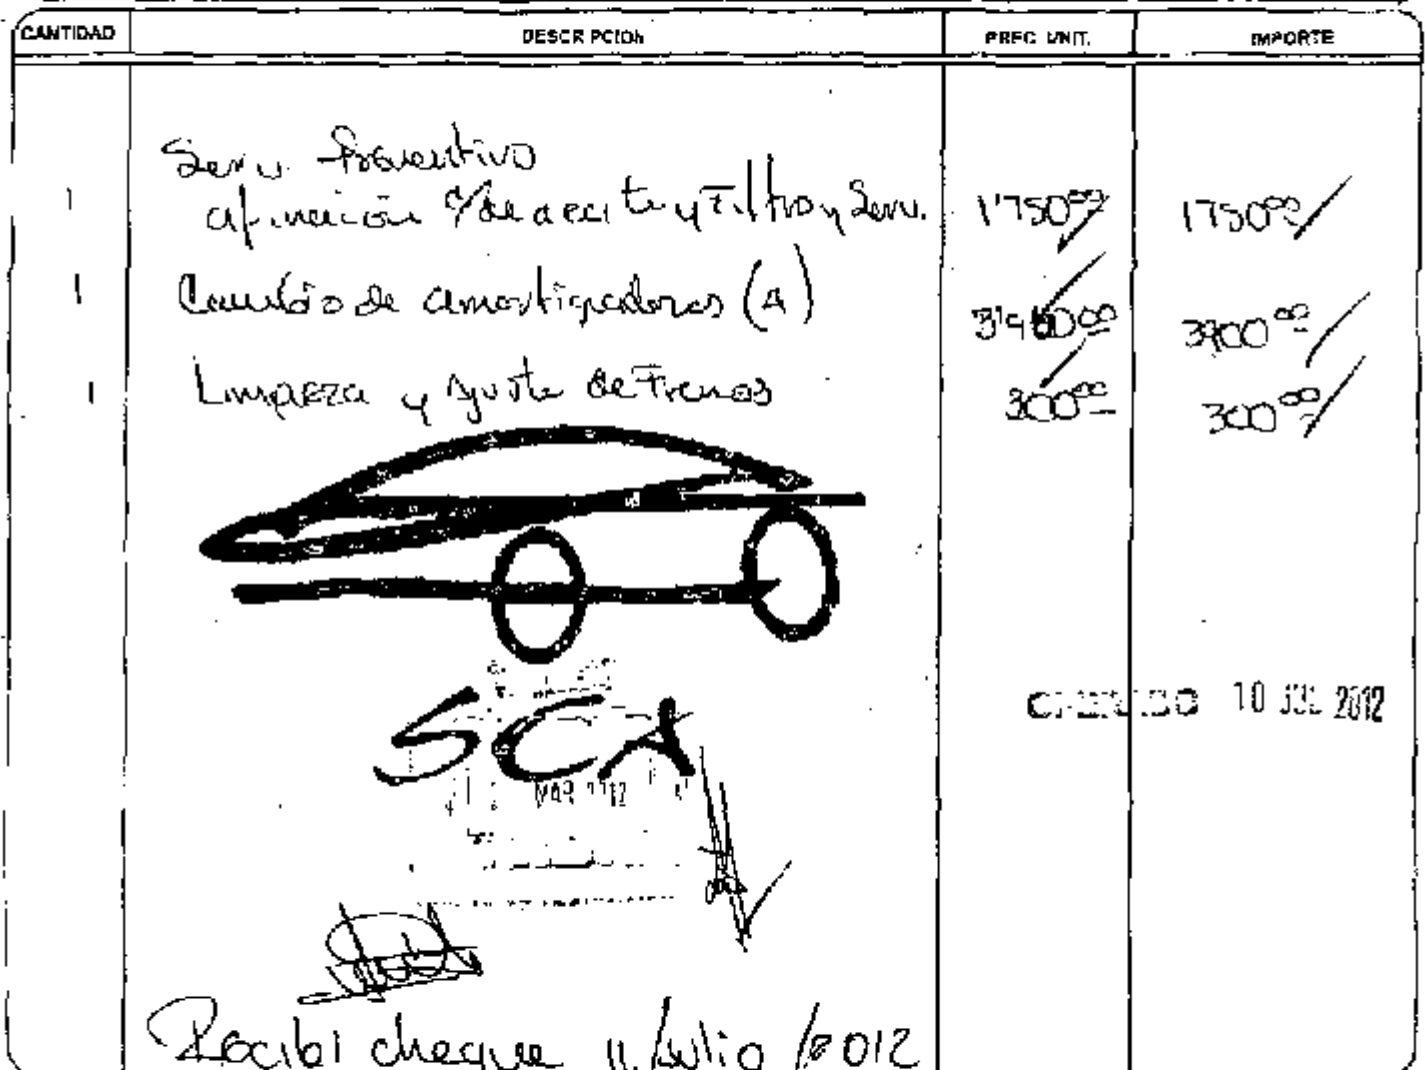 CANTIDAD DESCRIPCION PREC. UNIT. IMPORTE
Serv. Preventivo
1 afinación c/de aceite y Filtro y Serv. 1'750.00 1750.00
1 Cambio de amortiguadores (4) 3'900.00 3900.00
1 Limpieza y ajuste de Frenos 300.00 300.00
10 JUL 2012
SCA
MAR
Recibi cheque 11/Julio/2012